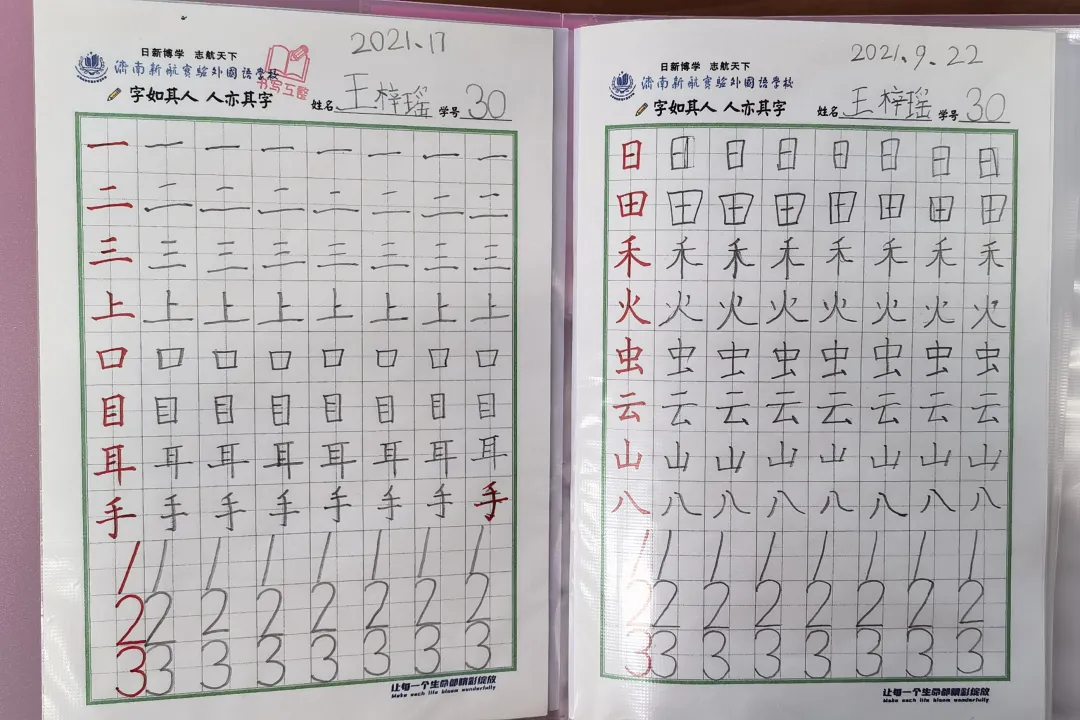 2021.17
日新博学 志航天下
济南新航实验外国语学校
书写工整
字如其人 人亦其字
姓名 王梓瑶 学号 30
一 一 一 一 一 一 一 一
二 二 二 二 二 二 二 二
三 三 三 三 三 三 三 三
上 上 上 上 上 上 上 上
口 口 口 口 口 口 口 口
目 目 目 目 目 目 目 目
耳 耳 耳 耳 耳 耳 耳 耳
手 手 手 手 手 手 手 手
1 1 1 1 1 1 1 1
2 2 2 2 2 2 2 2
3 3 3 3 3 3 3 3
让每一个生命都精彩绽放
Make each life bloom wonderfully
2021.9.22
日新博学 志航天下
济南新航实验外国语学校
字如其人 人亦其字
姓名 王梓瑶 学号 30
日 日 日 日 日 日 日 日
田 田 田 田 田 田 田 田
禾 禾 禾 禾 禾 禾 禾 禾
火 火 火 火 火 火 火 火
虫 虫 虫 虫 虫 虫 虫 虫
云 云 云 云 云 云 云 云
山 山 山 山 山 山 山 山
八 八 八 八 八 八 八 八
1 1 1 1 1 1 1 1
2 2 2 2 2 2 2 2
3 3 3 3 3 3 3 3
让每一个生命都精彩绽放
Make each life bloom wonderfully